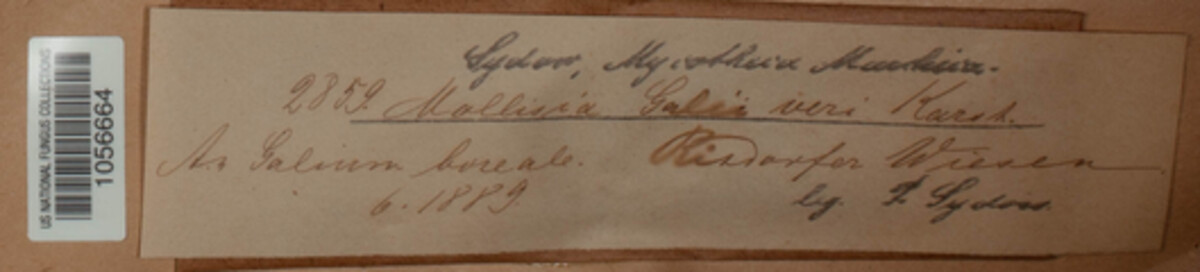 US NATIONAL FUNGUS COLLECTIONS
1056664
Sydow, Mycotheca Marchica.
2859. Mollisia Galii veri Karst.
An Galium boreale. Rixdorfer Wiesen
6. 1889. leg. P. Sydow.